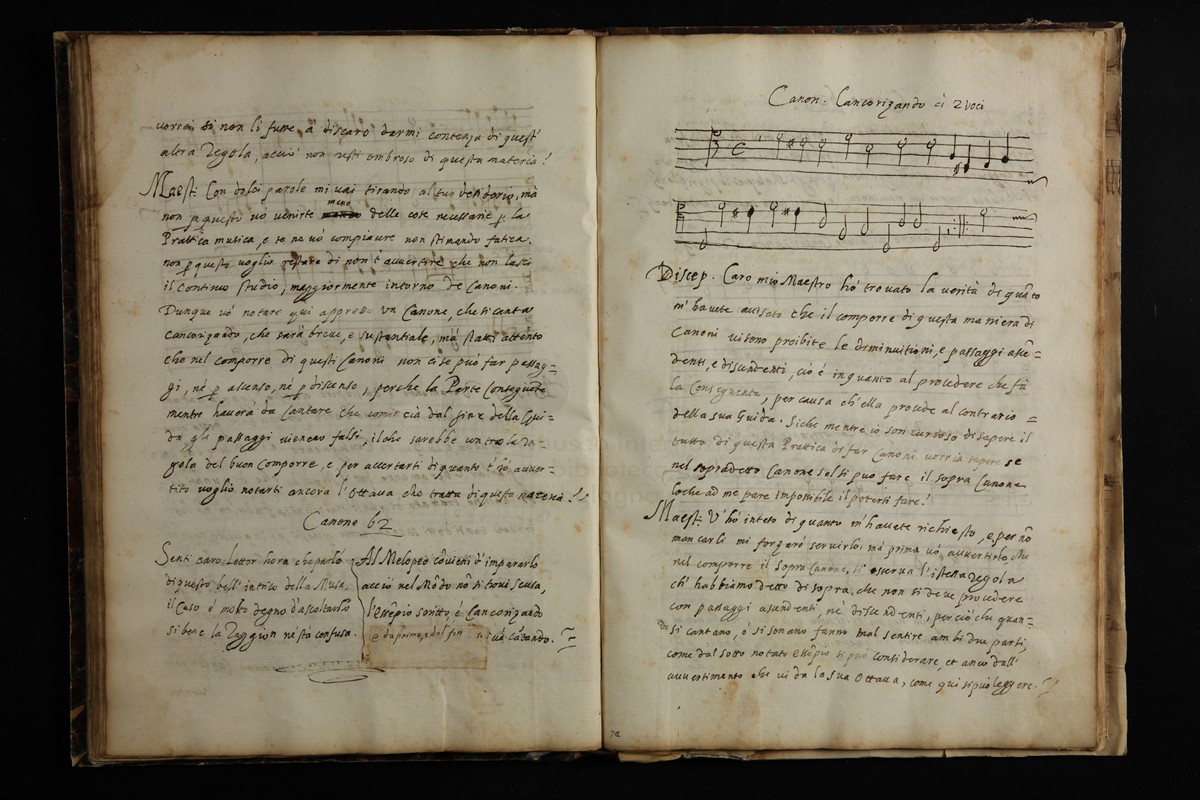 vorrei si non li fusse à discaro darmi conteza di quest'
altra Regola, acciò non resti ombroso di questa materia!
Maest: Con dolci parole mi vai tirando al tuo desiderio, mà
non p questo vò venirte meno delle cose necessarie p la
Prattica musica, e te ne vò compiacere non stimando fatica.
non p questo voglio restare di non t'avvertire che non lasci
il continuo studio, maggiormente intorno de Canoni.
Dunque vò notare qui appresso vn Canone, che si canta
cancorizando, che sarà breue, e sustantiale, mà statti attento
che nel comporre di questi Canoni non ci se può far passag=
gi, nè p ascenso, nè p discenso, perche la Parte Conseguete
mentre hauerà da Cantare che comincia dal fine della Gui=
da gli passaggi vieneno falsi, ilche sarebbe contra la Re=
gola del buon comporre, e per accertarti di quanto t'hò auuer=
tito voglio notarti ancora l'Ottaua che tratta di questa materia!
Canone 62
Senti caro lettor hora che parlo
di questo bell'intrico della Musa,
il Caso è molto degno d'ascoltarlo
si bene la Raggion ne stà confusa.
Al Melopeo còuieni d'impararlo
acciò nel Mòdo nò si troui scusa,
l'essèpio scritto, è Cancorizando
e da prima, e dal fin si và càtando.
Canon: Cancorizando à 2 voci
Discep. Caro mio Maestro hò trouato la verità di quàto
m'hauete auisato che il comporre di questa maniera di
Canoni vi sono proibite le diminuitioni, e passaggi ascè=
denti, e discendenti, ciò è in quanto al procedere che fà
la Conseguente, per causa ch'ella procede al contrario
della sua Guida. Siche mentre io son curioso di sapere il
tutto di questa Prattica di far Canoni vorria sapere se
nel sopradetto Canone sol si puo fare il sopra Canone
loche ad me pare impossibile il potersi fare!
Maest: V'hò inteso di quanto m'hauete richiesto, e per nò
mancarli mi forzarò seruirlo, mà prima vò auuertirlo, che
nel comporre il sopra Canone, si osserua l'istessa Regola
ch'habbiamo detto di sopra, che non si deue procedere
con passaggi ascendenti, nè discendenti, perciò che quan=
do si cantano, ò si sonano fanno mal sentire ambi due parti,
come dal sotto notato essèpio si può considerare, et anco dall'
auuertimento che vi da la sua Ottaua, come qui si può leggere.
72